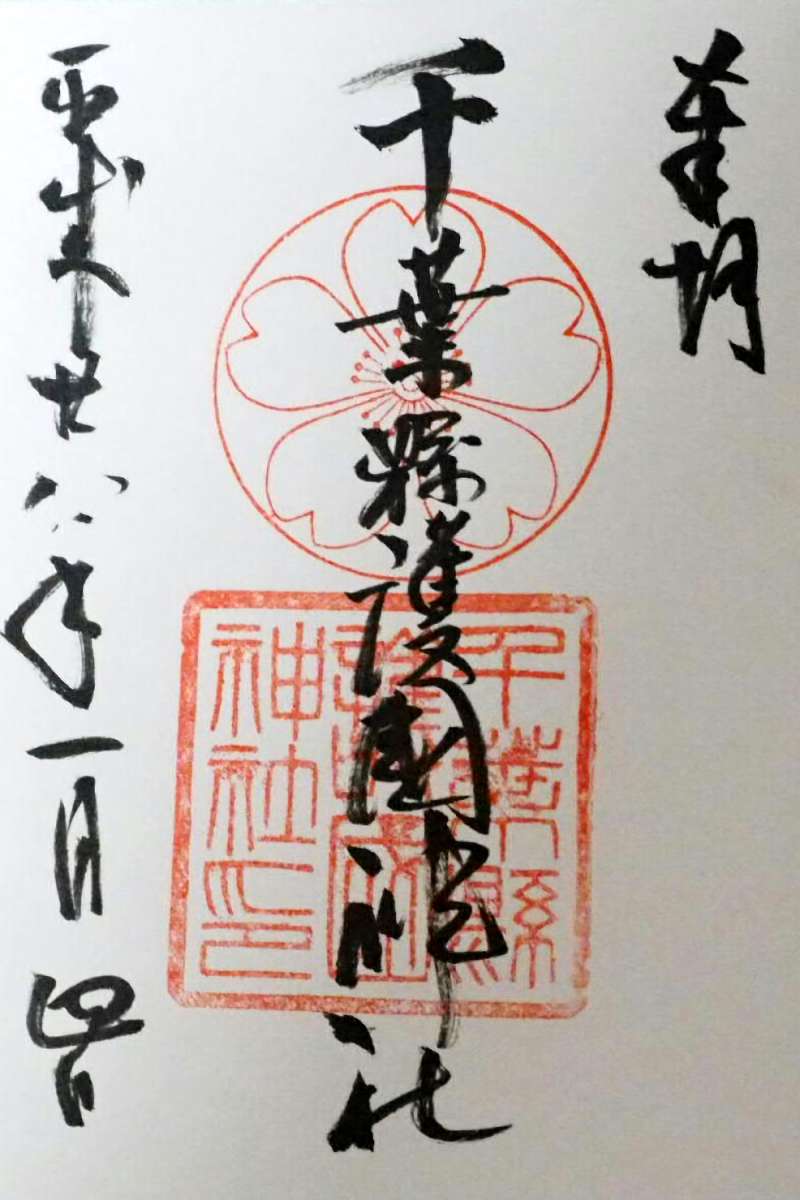 奉拝
千葉縣護國神社
千葉縣
護國
神社印
平成廿八年一月四日